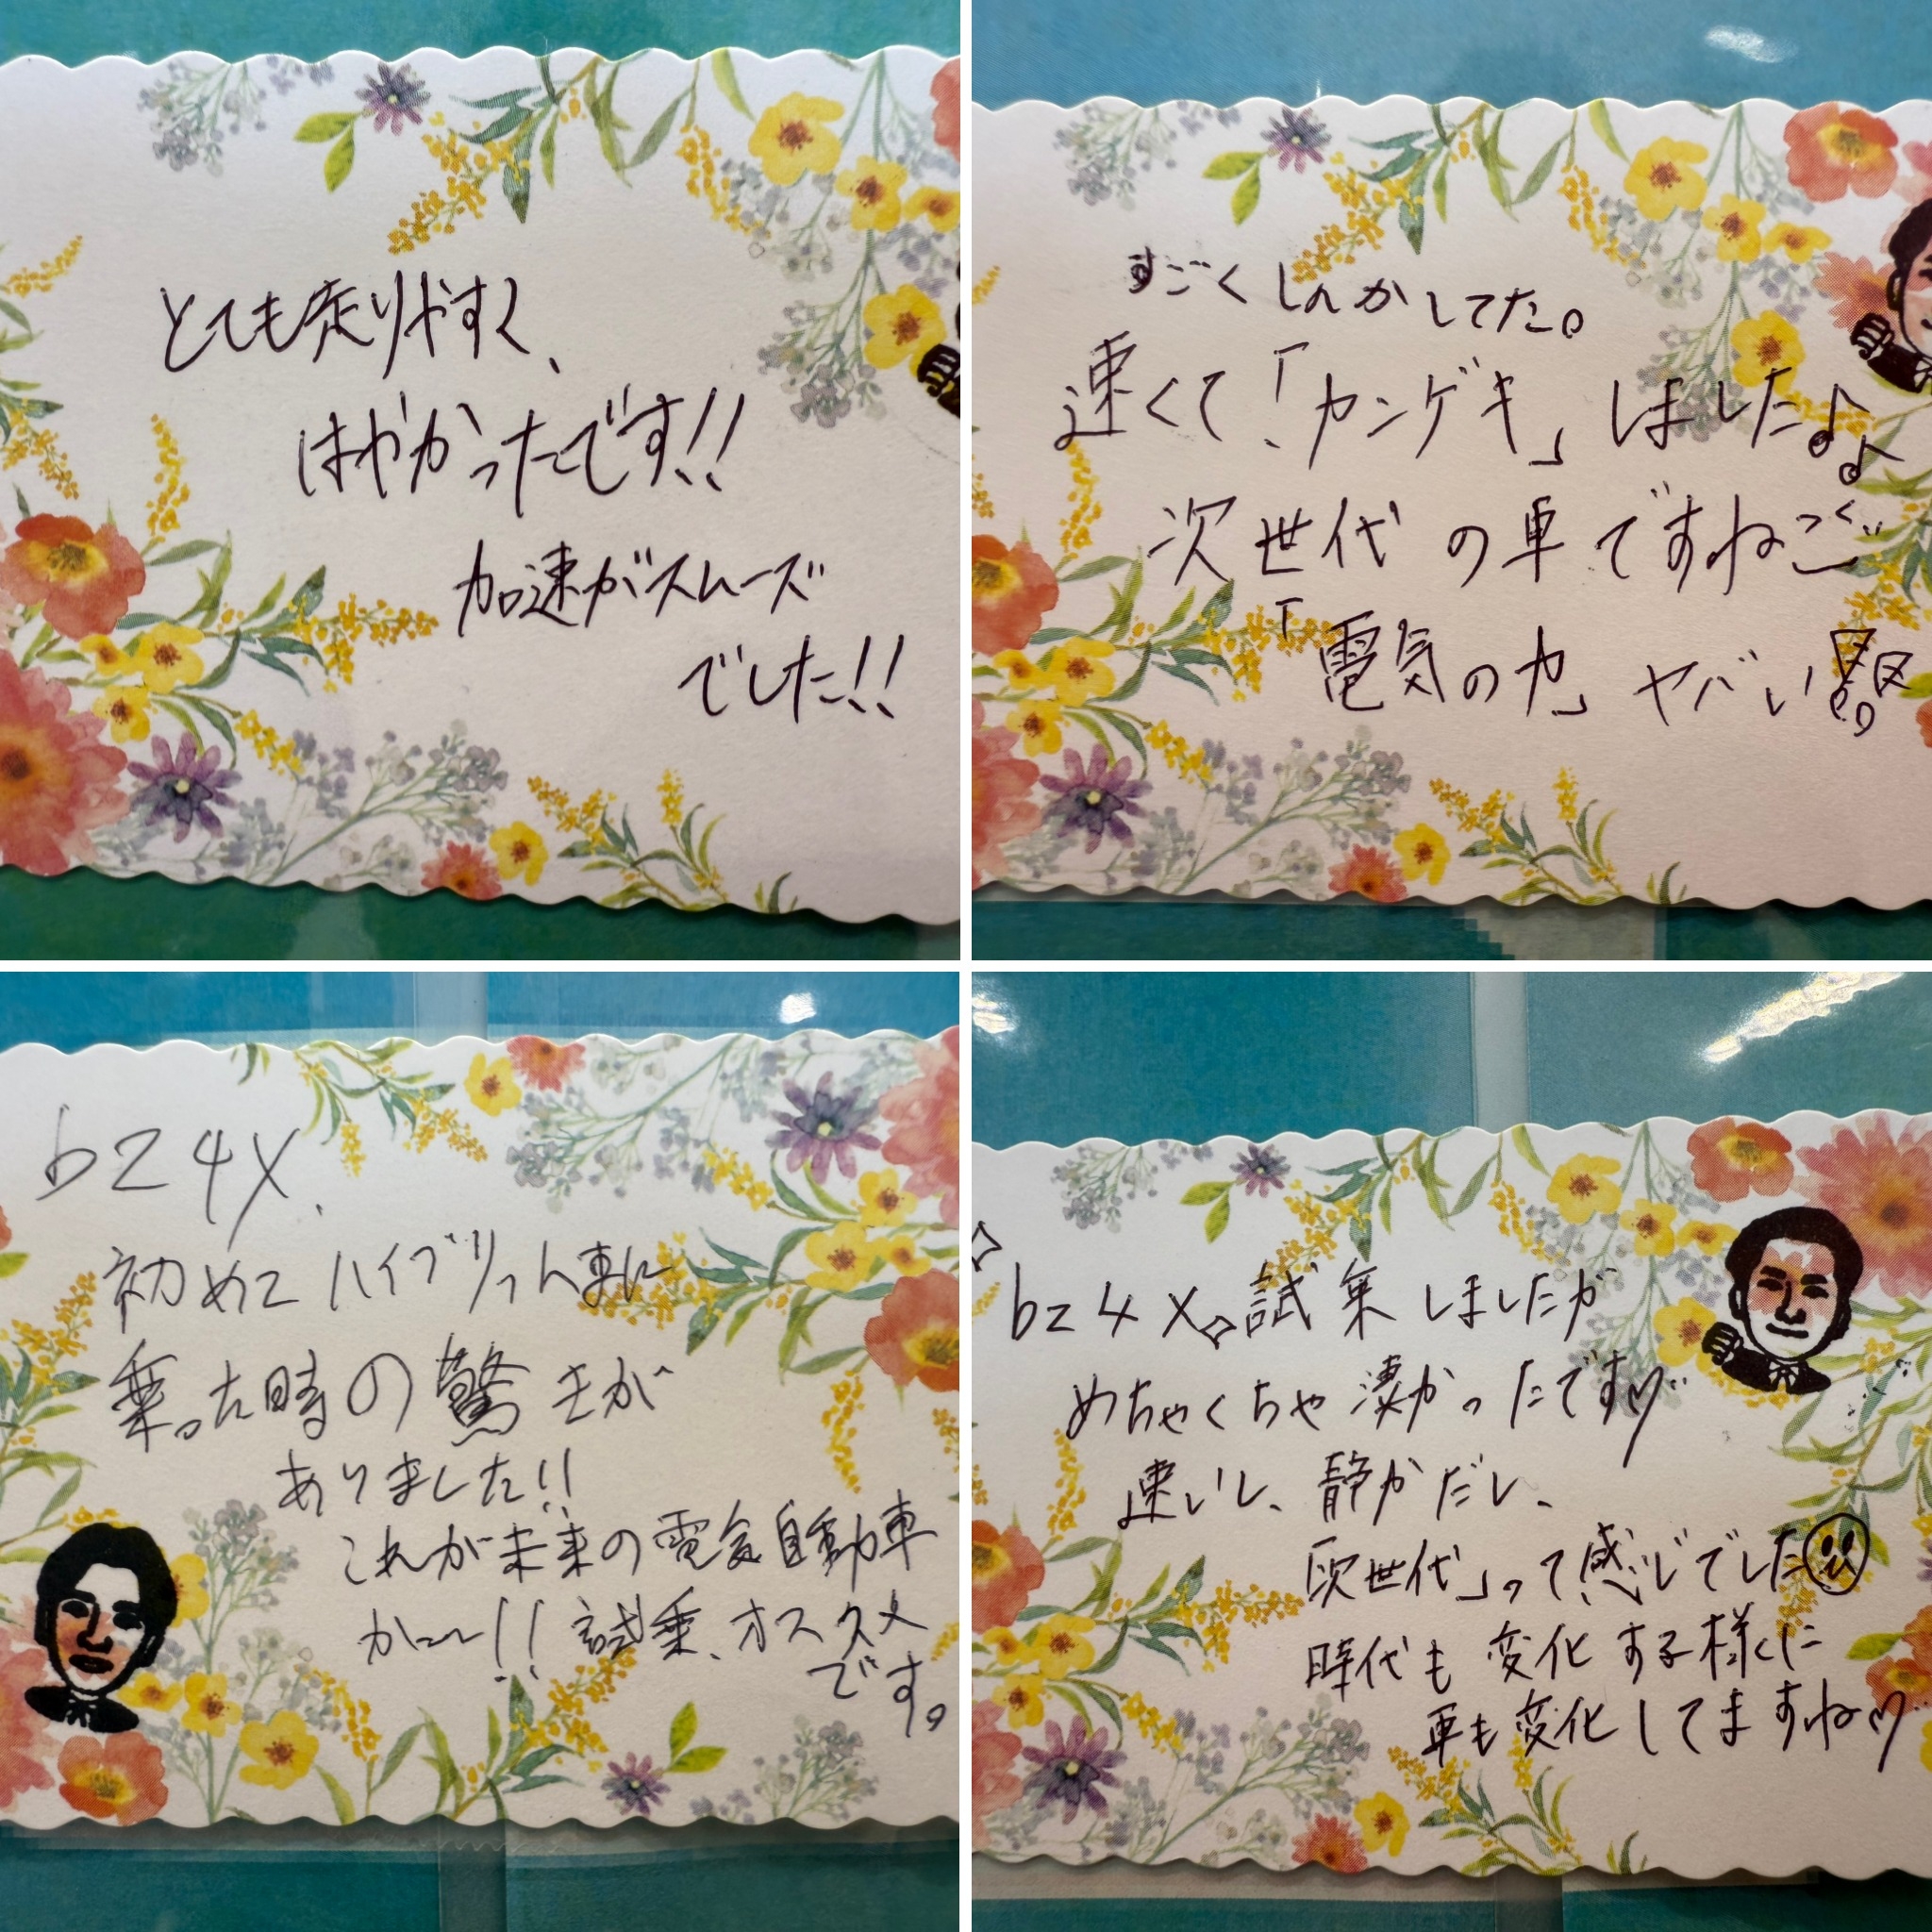 とても走りやすく、
はやかったです!!
加速がスムーズ
でした!!
すごくしんかしてた。
速くて、「カンゲキ」しました♪♪
次世代の車ですね
「電気の力」ヤバい!!
bz4X.
初めてハイブリット車に
乗った時の驚きが
ありました!!
これが未来の電気自動車
かー!!試乗、オススメ
です。
bz4X。試乗しましたが
めちゃくちゃ凄かったです♡
速いし、静かだし、
「次世代」って感じでした
時代も変化する様に
車も変化してますね♡